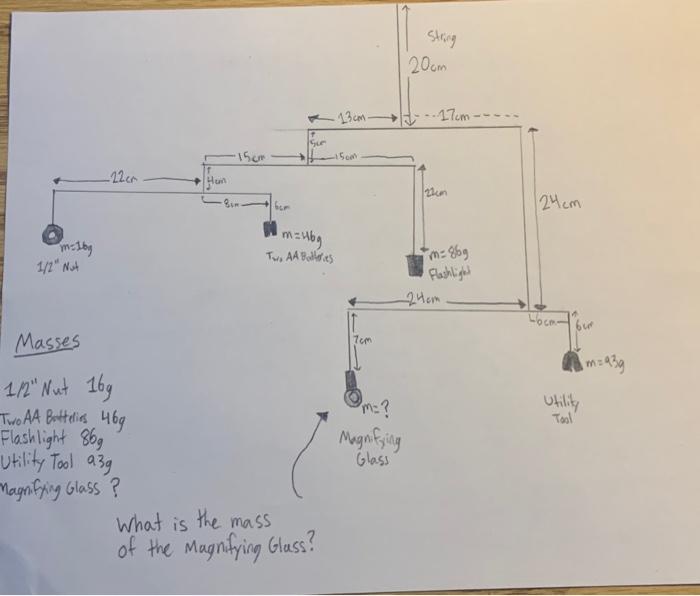 String
20cm
13cm
17cm
5cm
15cm
15cm
22cm
4cm
8cm
6cm
22cm
24cm
m=16g
1/2" Nut
m=46g
Two AA Batteries
m=86g
Flashlight
24cm
6cm
6cm
7cm
m=93g
Utility
Tool
m=?
Magnifying
Glass
Masses
1/2" Nut 16g
Two AA Batteries 46g
Flashlight 86g
Utility Tool 93g
Magnifying Glass ?
What is the mass
of the Magnifying Glass?